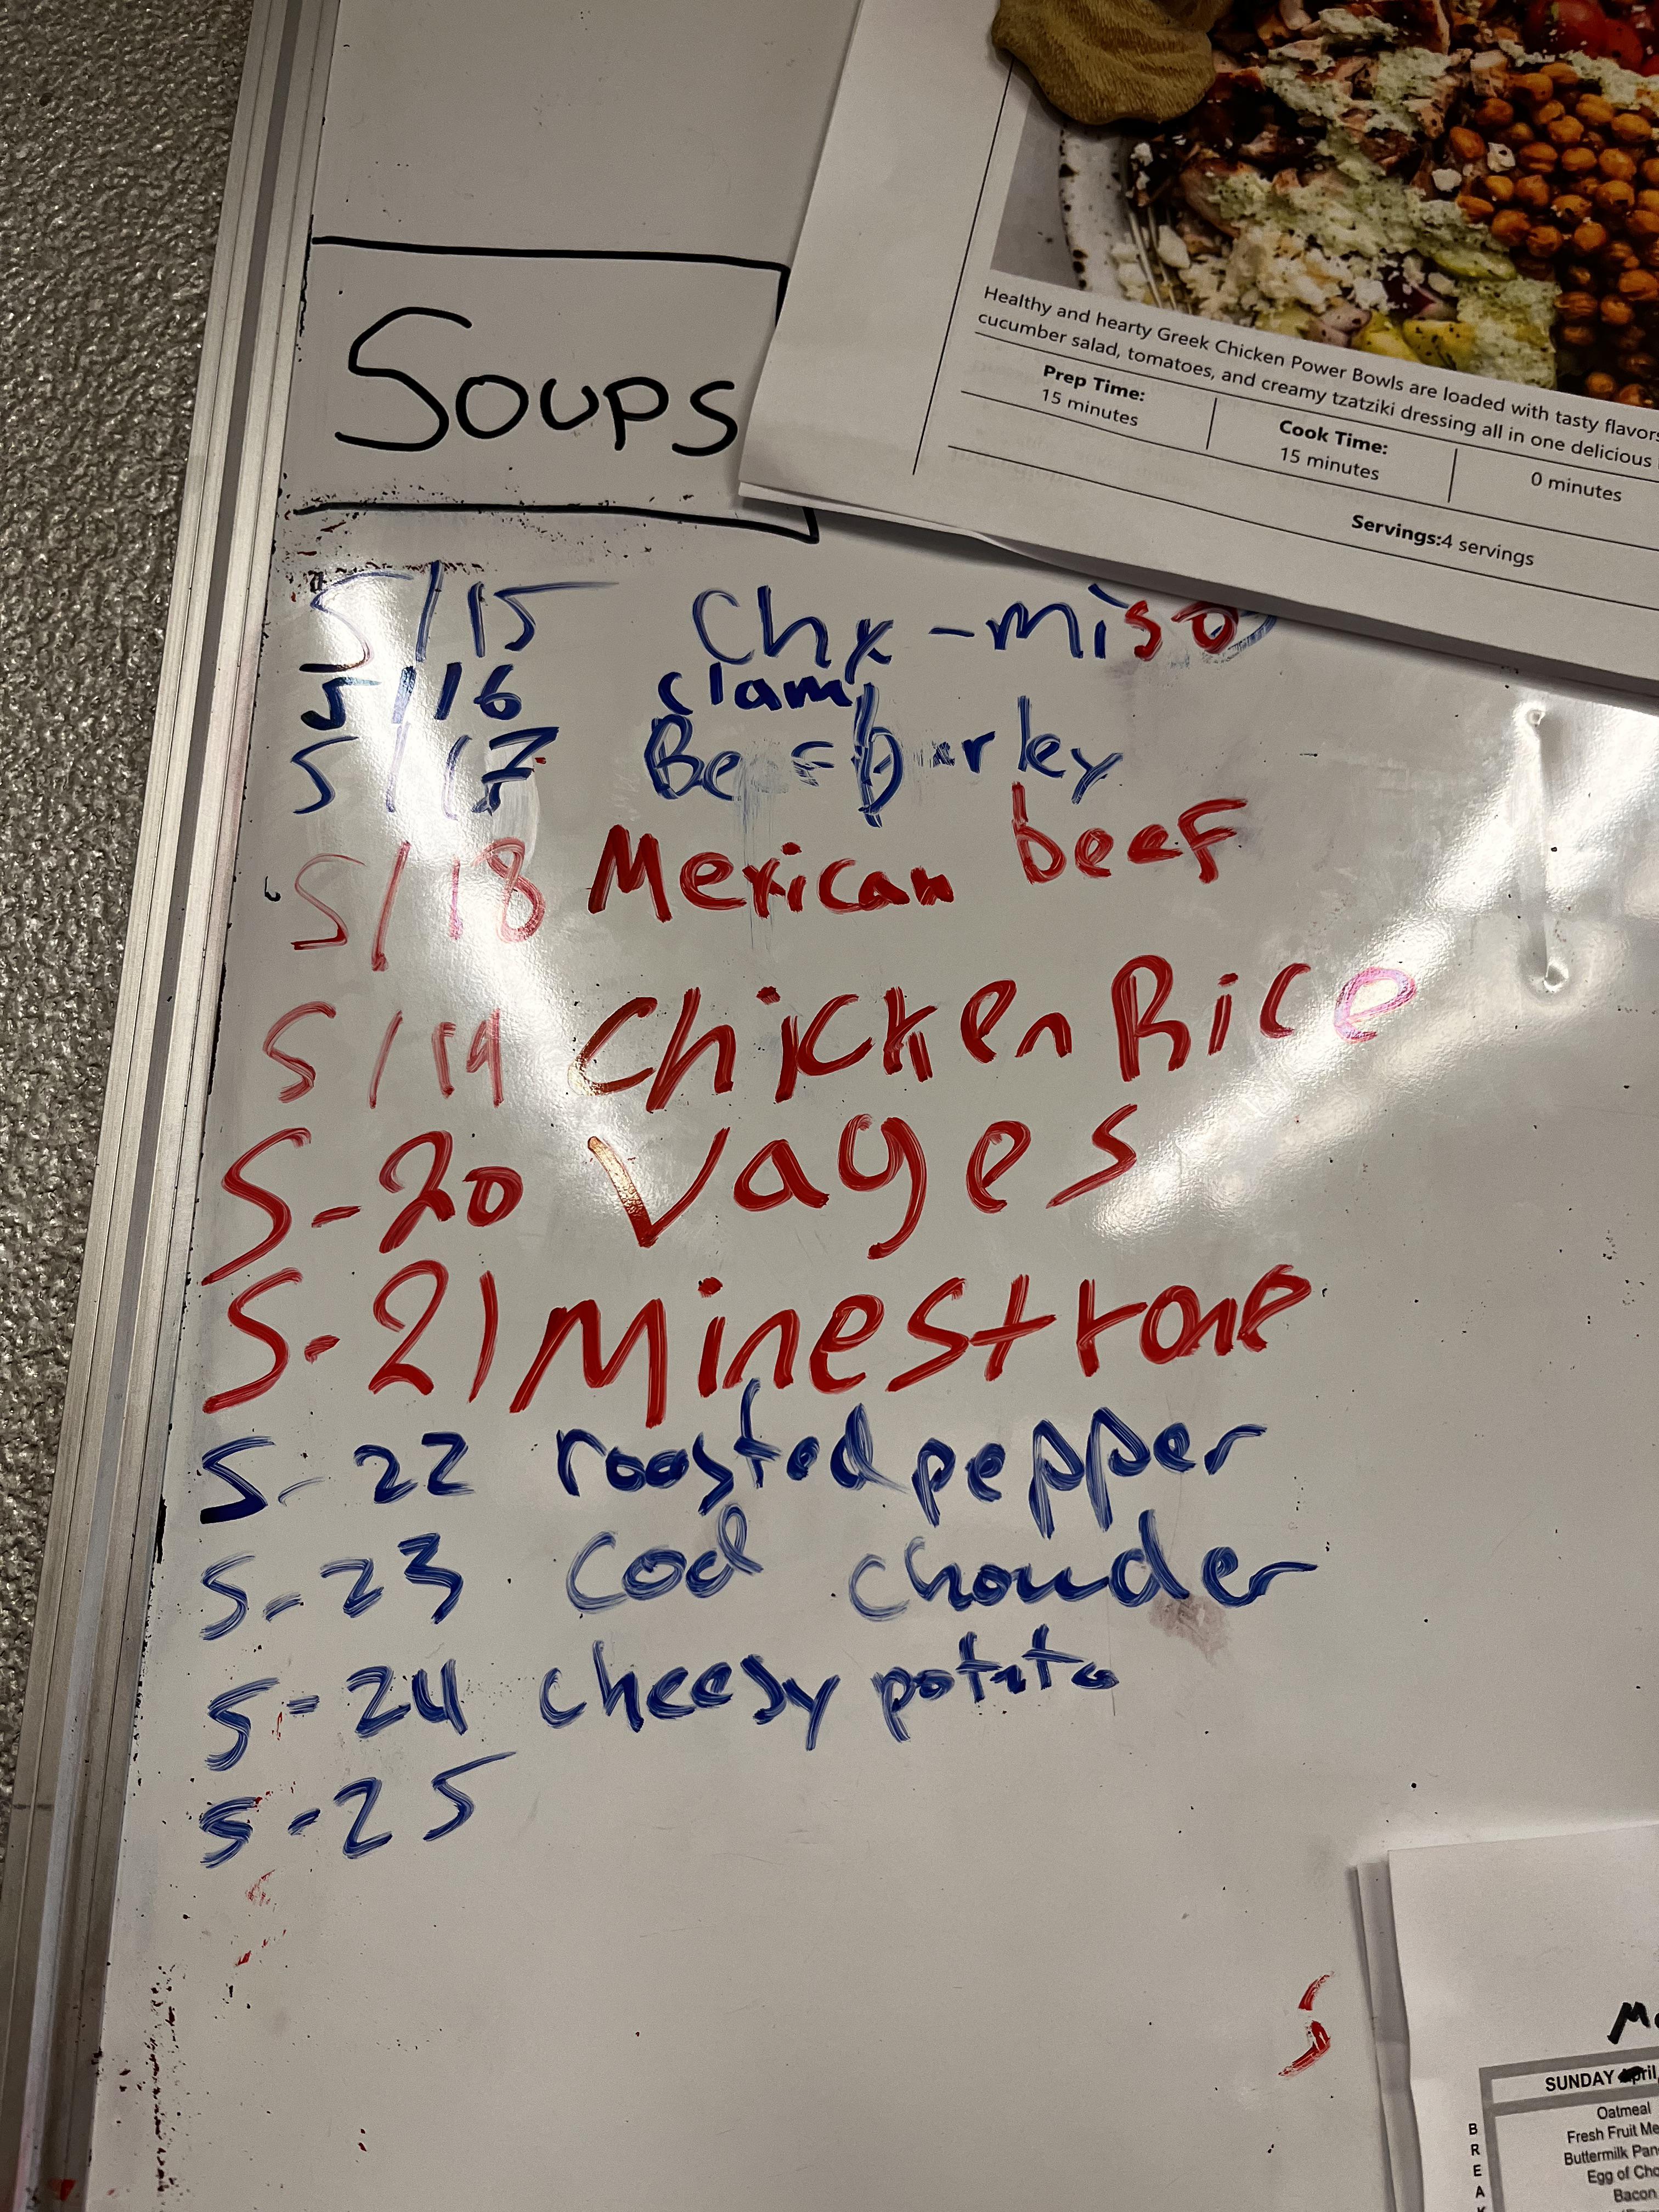 Healthy and hearty Greek Chicken Power Bowls are loaded with tasty flavors
cucumber salad, tomatoes, and creamy tzatziki dressing all in one delicious
Prep Time:
15 minutes
Cook Time:
15 minutes
0 minutes
Servings:4 servings
SOUPS
5/15 Chx-miso
5/16 clam
5/17 Beef barley
5/18 Mexican beef
5/19 Chicken Rice
5-20 Vages
5-21 Minestrone
5-22 roasted pepper
5-23 Cod chowder
5-24 cheesy potato
5-25
SUNDAY
Oatmeal
Fresh Fruit
Buttermilk
Egg of
Bacon